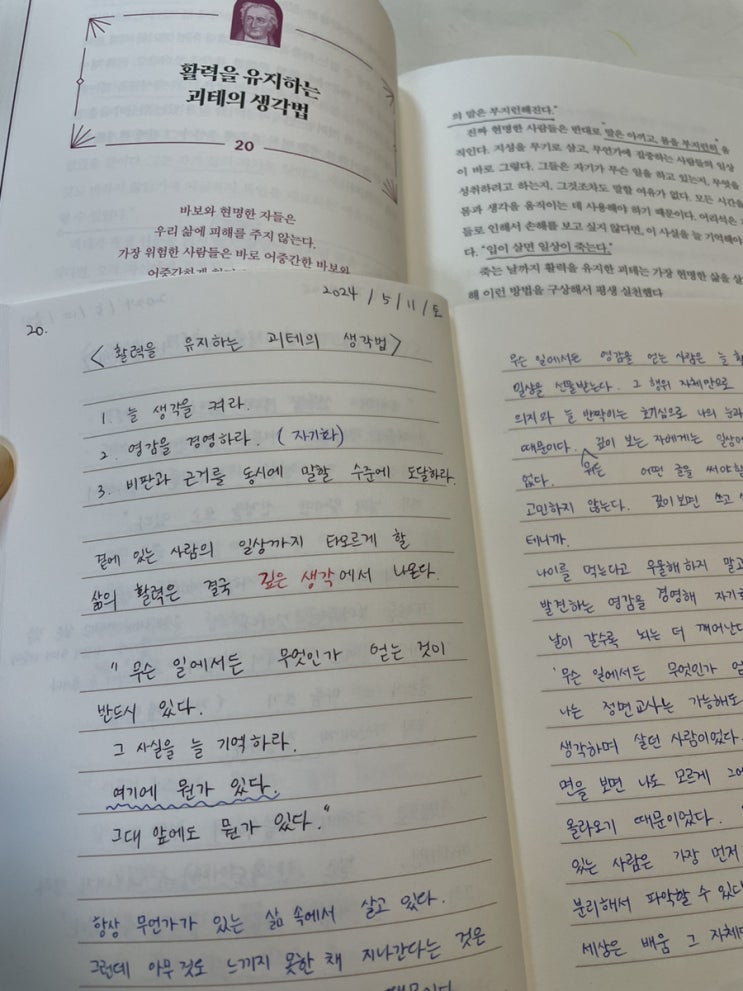 활력을 유지하는
괴테의 생각법
20
바보와 현명한 자들은
우리 삶에 피해를 주지 않는다.
가장 위험한 사람들은 바로 어중간한 바보와
의 말은 부지런해진다."
진짜 현명한 사람들은 반대로 "말은 아끼고, 몸을 부지런히" 움
직인다. 지성을 무기로 살고, 무언가에 집중하는 사람들의 일상
이 바로 그렇다. 그들은 자기가 무슨 일을 하고 있는지, 무엇을
성취하려고 하는지, 그것조차도 말할 여유가 없다. 모든 시간을
몸과 생각을 움직이는 데 사용해야 하기 때문이다. 어리석은
들로 인해서 손해를 보고 싶지 않다면, 이 사실을 늘 기억해야
다. "입이 살면 일상이 죽는다."
죽는 날까지 활력을 유지한 괴테는 가장 현명한 삶을 살
해 이런 방법을 구상해서 평생 실천했다
2024 / 5 / 11 / 토
20.
<활력을 유지하는 괴테의 생각법>
1. 늘 생각을 켜라.
2. 영감을 경영하라. (자기화)
3. 비판과 근거를 동시에 말할 수준에 도달하라.
곁에 있는 사람의 일상까지 타오르게 할
삶의 활력은 결국 깊은 생각에서 나온다.
" 무슨 일에서든 무엇인가 얻는 것이
반드시 있다.
그 사실을 늘 기억하라.
여기에 뭔가 있다.
그대 앞에도 뭔가 있다."
항상 무언가가 있는 삶 속에서 살고 있다.
그런데 아무것도 느끼지 못한 채 지나간다는 것은
때문이다
무슨 일에서든 영감을 얻는 사람은 늘
일상을 선물받는다. 그 행위 자체만으로
의지와 늘 반짝이는 호기심으로 나의 눈과
때문이다. 깊이 보는 자에게는 일상이
없다. 어떤 글을 써야 할
고민하지 않는다. 깊이 보면 쓰고
테니까.
나이를 먹는다고 우울해 하지 말고
발견하는 영감을 경영해 자기화
날이 갈수록 뇌는 더 깨어난다
'무슨 일에서든 무엇인가 얻
나는 정면교사는 가능해도
생각하며 살던 사람이었다.
면을 보면 나도 모르게 그에
올라오기 때문이었다.
있는 사람은 가장 먼저
분리해서 파악할 수 있다
세상은 배움 그 자체